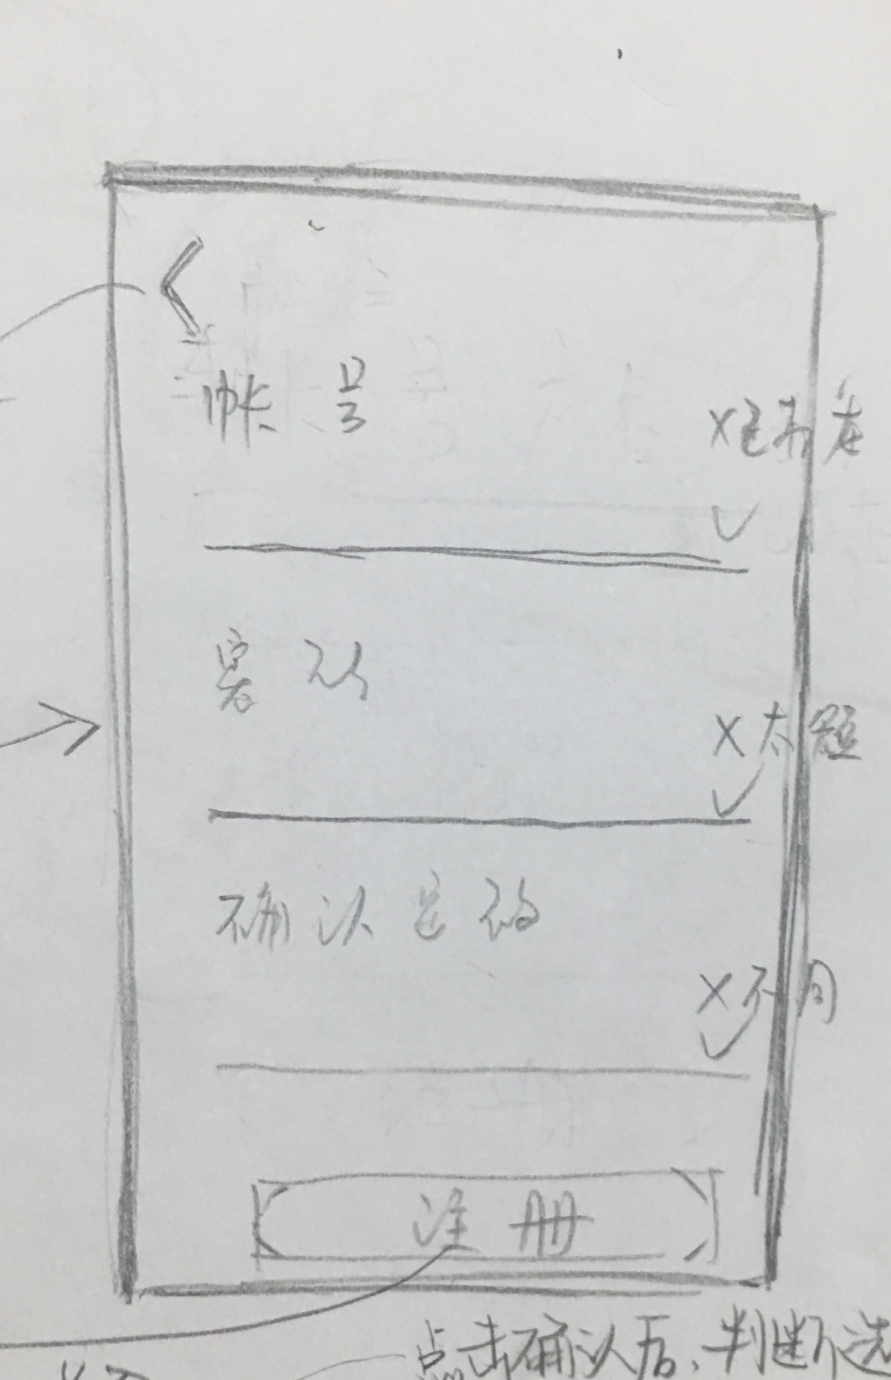 帐号
×已存在
✓
密码
×太短
✓
确认密码
×不同
✓
注册
点击确认后、判断